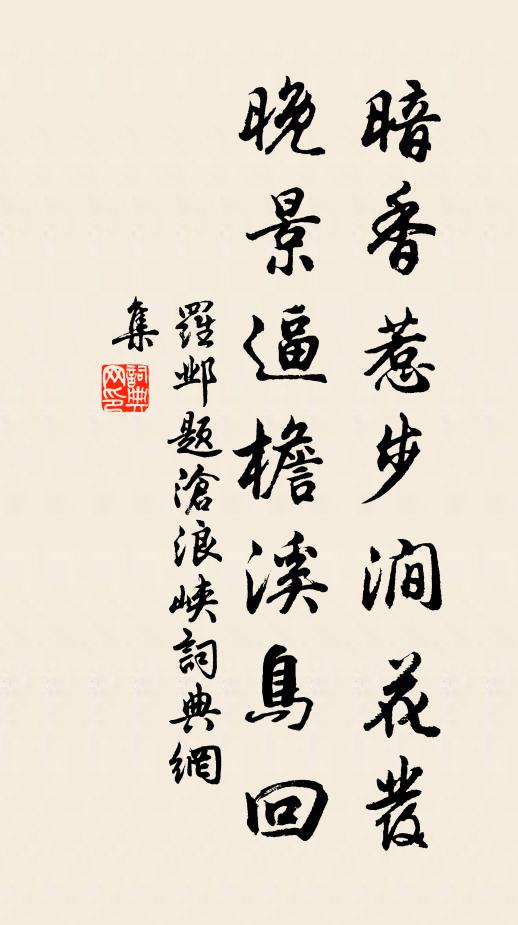 暗香惹步澗花發
晚景逼檐溪鳥回
羅鄴題滄浪峽詞典網
集
詞典
网印